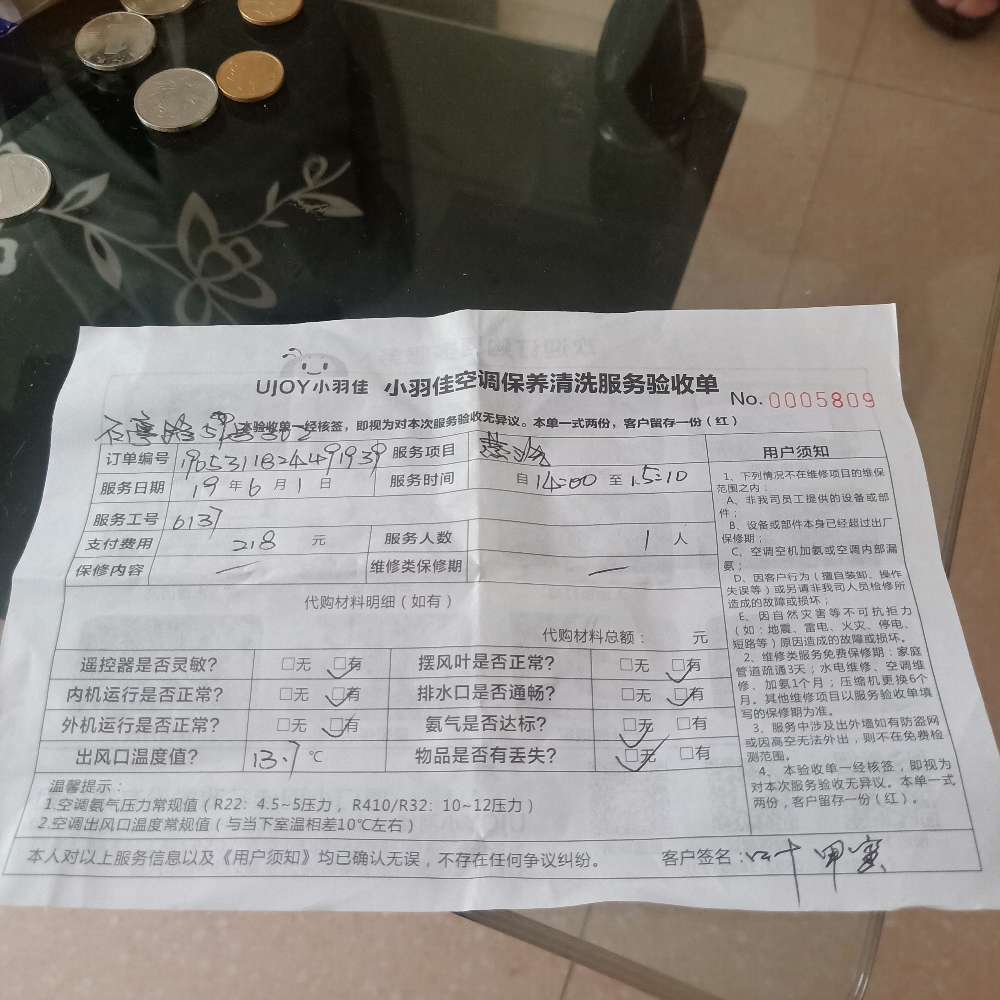 UJOY小羽佳 小羽佳空调保养清洗服务验收单 No. 0005809
本验收单一经核签，即视为对本次服务验收无异议。本单一式两份，客户留存一份（红）
订单编号 服务项目
服务日期 19 年 6 月 1 日 服务时间 自 14:00 至 15:10
服务工号 6137
支付费用 218 元 服务人数 1 人
保修内容 — 维修类保修期 —
代购材料明细（如有）
代购材料总额： 元
遥控器是否灵敏？ □无 □有 摆风叶是否正常？ □无 □有
内机运行是否正常？ □无 □有 排水口是否通畅？ □无 □有
外机运行是否正常？ □无 □有 氨气是否达标？ □无 □有
出风口温度值？ 13.7 ℃ 物品是否有丢失？ □无 □有
温馨提示：
1.空调氨气压力常规值（R22：4.5~5压力，R410/R32：10~12压力）
2.空调出风口温度常规值（与当下室温相差10℃左右）
本人对以上服务信息以及《用户须知》均已确认无误，不存在任何争议纠纷。 客户签名：叶甲
用户须知
1、下列情况不在维修项目的维保
范围之内：
A、非我司员工提供的设备或部
件；
B、设备或部件本身已经超过出厂
保修期；
C、空调空机加氨或空调内部漏
氨；
D、因客户行为（擅自装卸、操作
失误等）或另请非我司人员检修所
造成的故障或损坏；
E、因自然灾害等不可抗拒力
（如：地震、雷电、火灾、停电、
短路等）原因造成的故障或损坏。
2、维修类服务免费保修期：家庭
管道疏通3天；水电维修、空调维
修、加氨1个月；压缩机更换6个
月。其他维修项目以服务验收单填
写的保修期为准。
3、服务中涉及出外墙如有防盗网
或因高空无法外出，则不在免费检
测范围。
4、本验收单一经核签，即视为
对本次服务验收无异议。本单一式
两份，客户留存一份（红）。